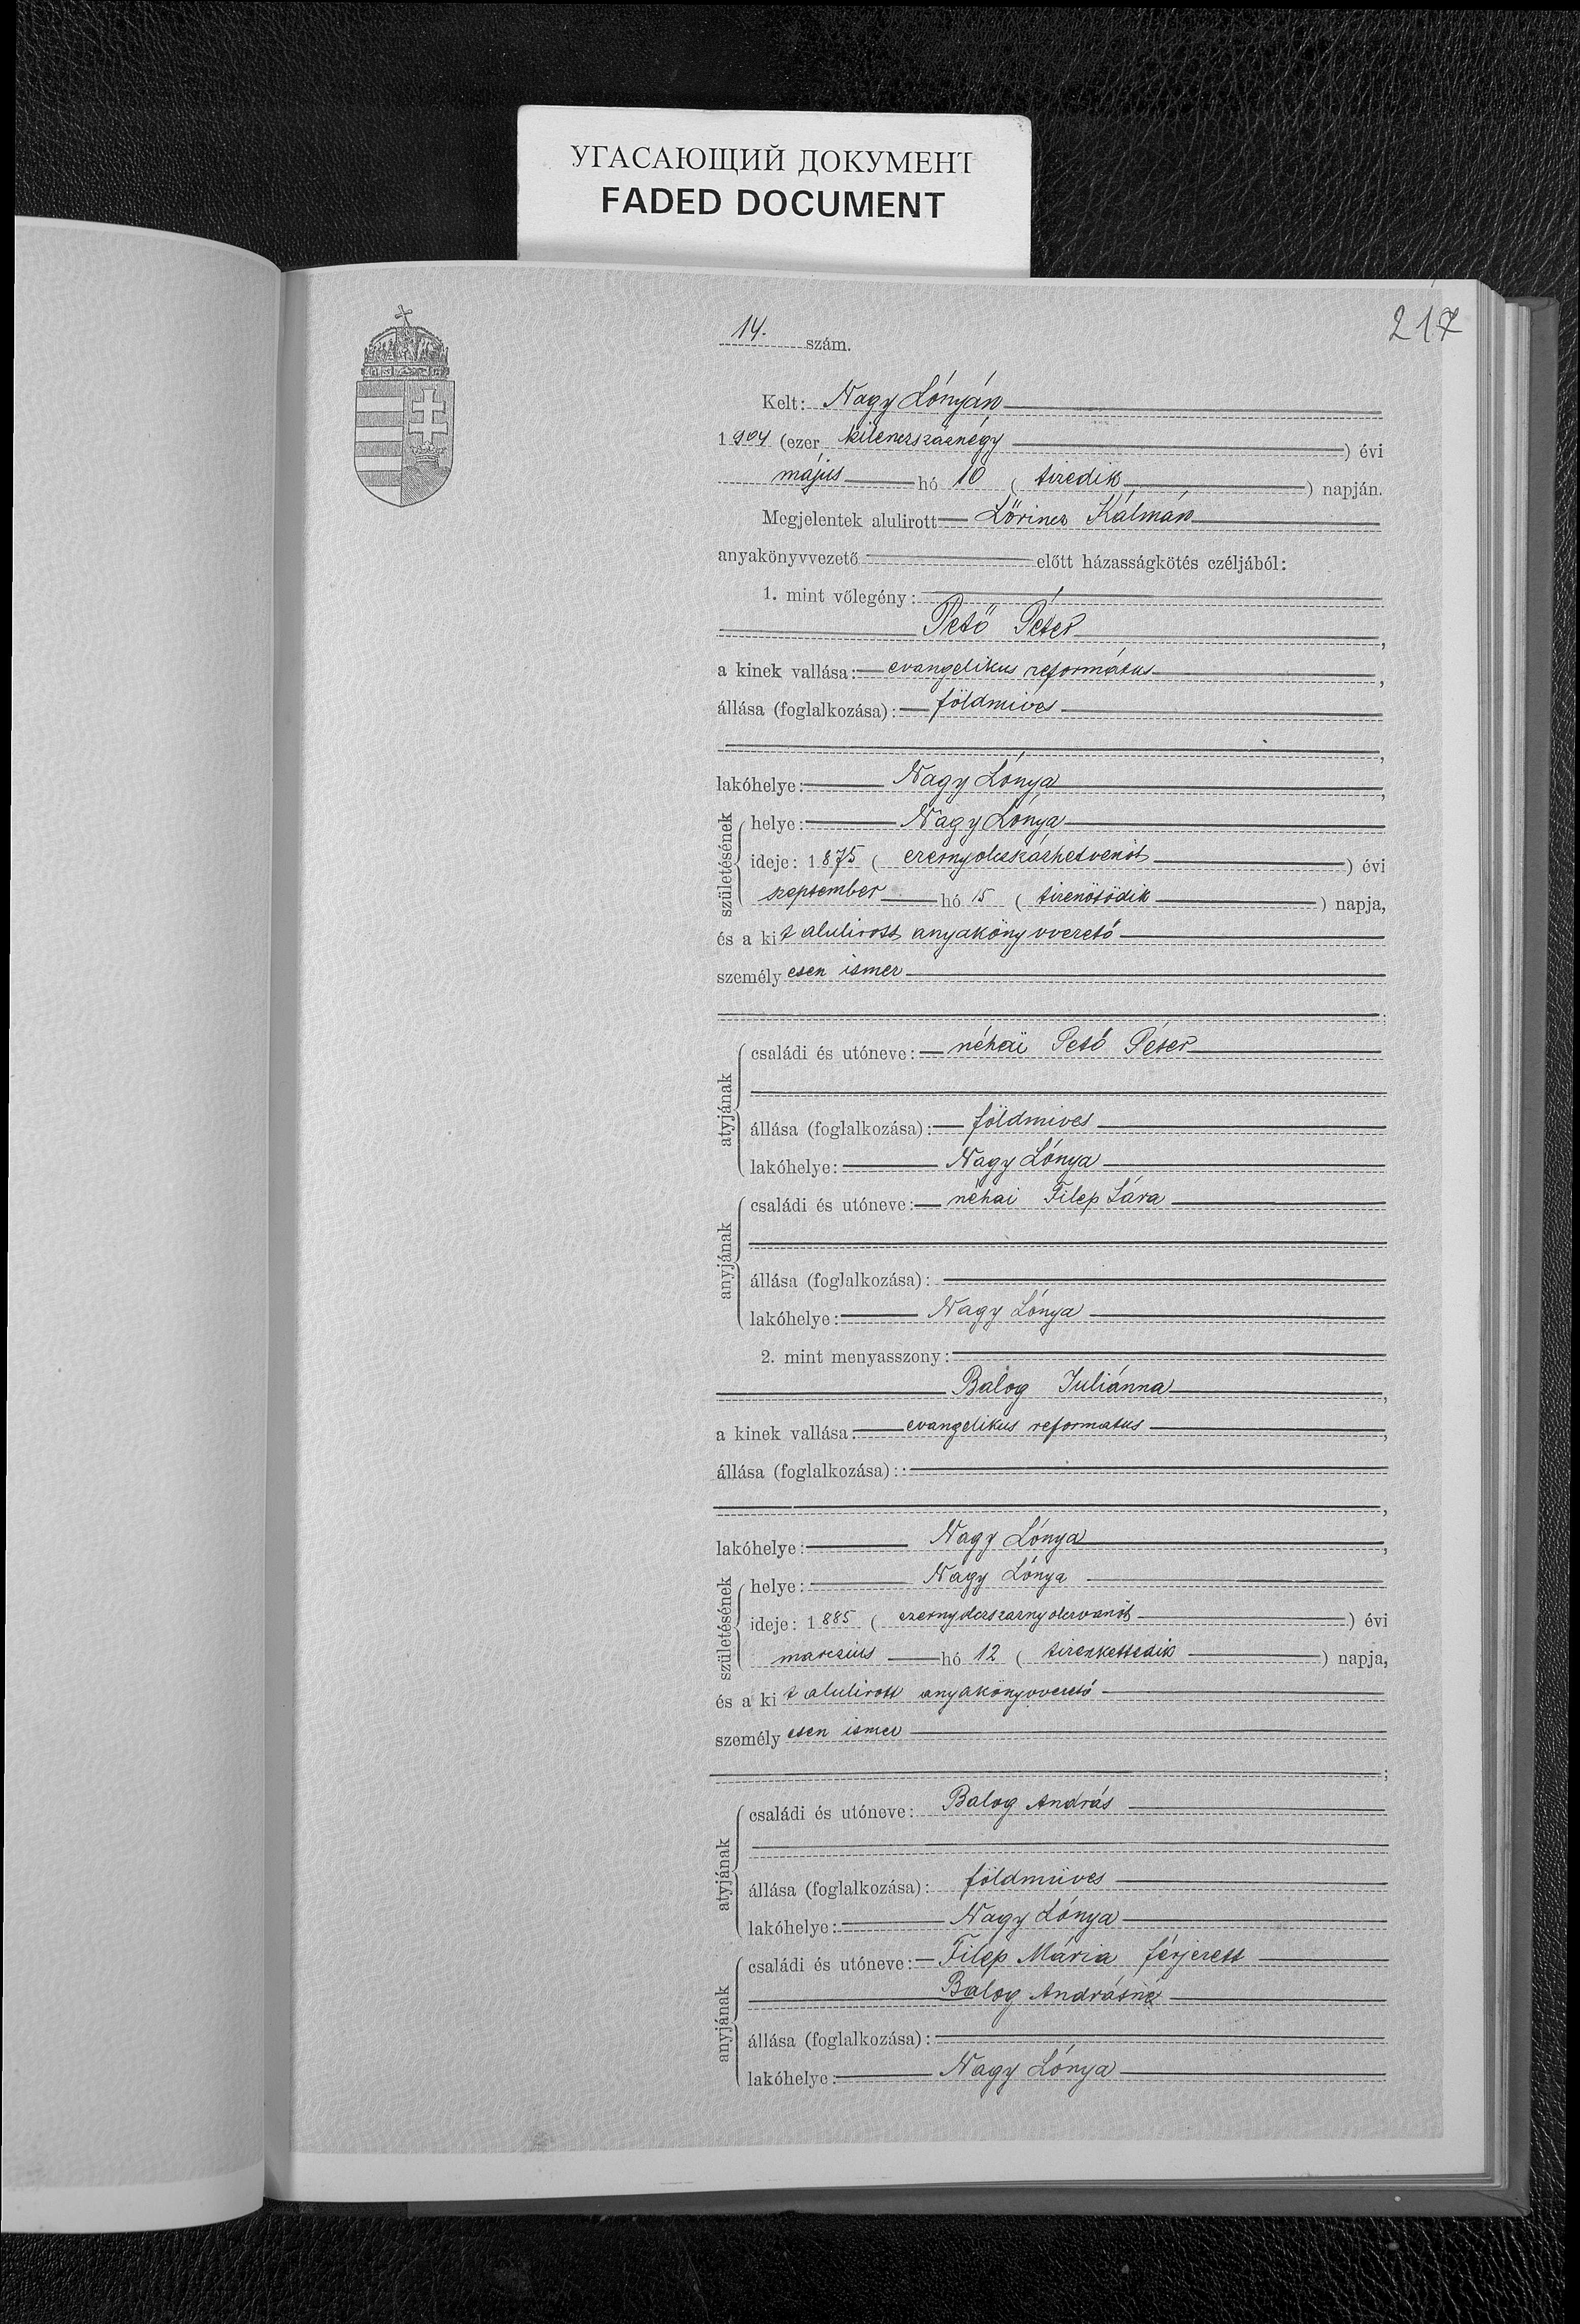 УГАСАЮЩИЙ ДОКУМЕНТ
FADED DOCUMENT
217
14. szám.
Kelt: Nagy Lónyán
1904 (ezer kilenczszáznégy) évi
május hó 10 (tizedik) napján.
Megjelentek alulirott Lőrincz Kálmán
anyakönyvvezető előtt házasságkötés czéljából:
1. mint vőlegény:
Pető Péter,
a kinek vallása: evangelikus református,
állása (foglalkozása): földmives
,
lakóhelye: Nagy Lónya,
születésének
helye: Nagy Lónya
ideje: 1875 (ezernyolczszázhetvenöt) évi
szeptember hó 15 (tizenötödik) napja,
és a kit alulirott anyakönyvvezető
személyesen ismer
;
atyjának
családi és utóneve: néhai Pető Péter
állása (foglalkozása): földmives
lakóhelye: Nagy Lónya
anyjának
családi és utóneve: néhai Filep Sára
állása (foglalkozása):
lakóhelye: Nagy Lónya
2. mint menyasszony:
Balog Juliánna,
a kinek vallása: evangelikus reformatus,
állása (foglalkozása):
,
lakóhelye: Nagy Lónya,
születésének
helye: Nagy Lónya
ideje: 1885 (ezernyolczszáznyolczvanöt) évi
marczius hó 12 (tizenkettedik) napja,
és a kit alulirott anyakönyvvezető
személyesen ismer
;
atyjának
családi és utóneve: Balog András
állása (foglalkozása): földmüves
lakóhelye: Nagy Lónya
anyjának
családi és utóneve: Filep Mária férjezett
Balog Andrásné
állása (foglalkozása):
lakóhelye: Nagy Lónya